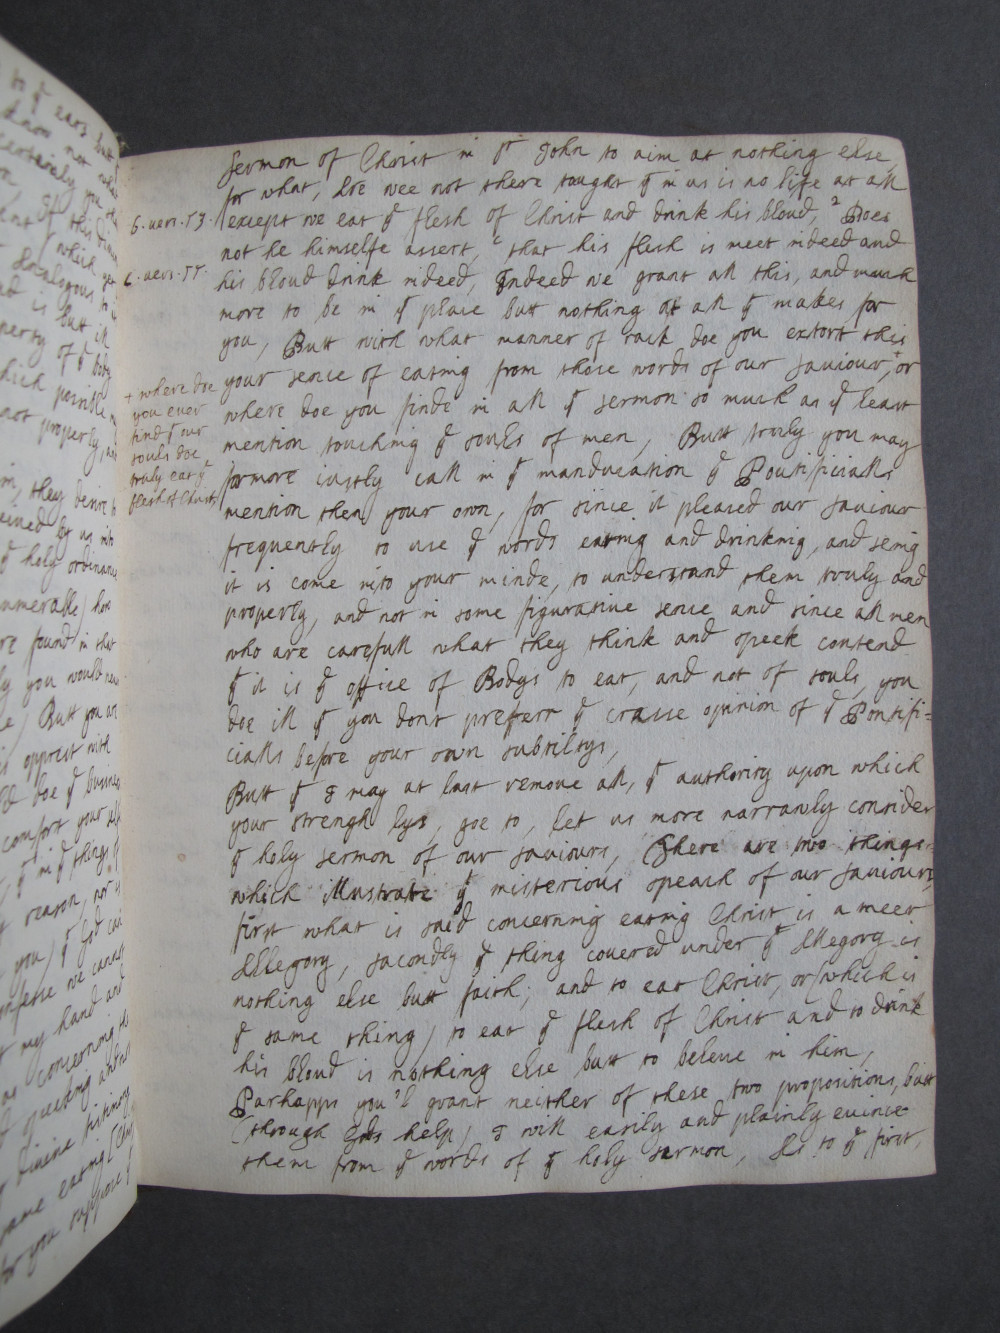 to yᵉ ears butt
know not what
certainly you
of this
which
Analogous to
is butt
of yᵉ body
which possible
not properly,
they desire
by us into
yᵉ holy ordinance
how
found in that
you would
Butt you are
opprest with
doe yᵉ business
comfort your selfe
yᵉ in yᵉ things
reason, nor
you) yᵗ God can
confesse we cannot
my hand and
as concerning the
speaking
divine
same eating
for you suppose
Sermon of Christ in Sᵗ John to aim at nothing else,
for what, Are wee not there tought yᵗ in us is no life at all
6. vers. 53. except we eat yᵉ flesh of Christ and drink his bloud, ² Does
not he himselfe assert, ᶜ that his flesh is meet indeed and
6. vers. 55. his bloud drink indeed, Indeed we grant all this, and much
more to be in yᵗ place butt nothing at all yᵗ makes for
you, Butt with what manner of rack doe you extort this
your sence of eating from those words of our Saviour,⁺ or
+ where doe
you ever
find yᵗ our
souls doe
truly eat yᵉ
flesh of Christ
where doe you finde in all yᵉ sermon so much as yᵉ least
mention touching yᵉ souls of men, Butt truly you may
farmore iustly call in yᵉ manducation yᵉ Pontificialls
mention then your own, for since it pleased our Saviour
frequently to use yᵉ words eating and drinking, and seing
it is come into your minde, to understand them truly and
properly, and not in some figurative sence and since all men
who are carefull what they think and speek contend
yᵗ it is yᵉ office of Bodys to eat, and not of souls, you
doe ill yᵗ you dont preferr yᵉ crasse opinion of yᵉ Pontifi=
cialls before your own subtiltys,
Butt yᵗ I may at last remove all, yᵉ authority upon which
your strengh lys, goe to, let us more narrawly consider
yᵉ holy sermon of our Saviours, There are two things
which illustrate yᵗ misterious speach of our Saviours,
first what is said concerning eating Christ is a meer
Allegory, secondly yᵉ thing covered under yᵗ Allegory is
nothing else butt faith; and to eat Christ, or (which is
yᵉ same thing) to eat yᵉ flesh of Christ and to drink
his bloud is nothing else butt to beleve in him,
Parhapps you'l grant neither of these two propositions, butt
(through Gods help) I will easily and plainly evince
them from yᵉ words of yᵉ holy Sermon, As to yᵉ first,